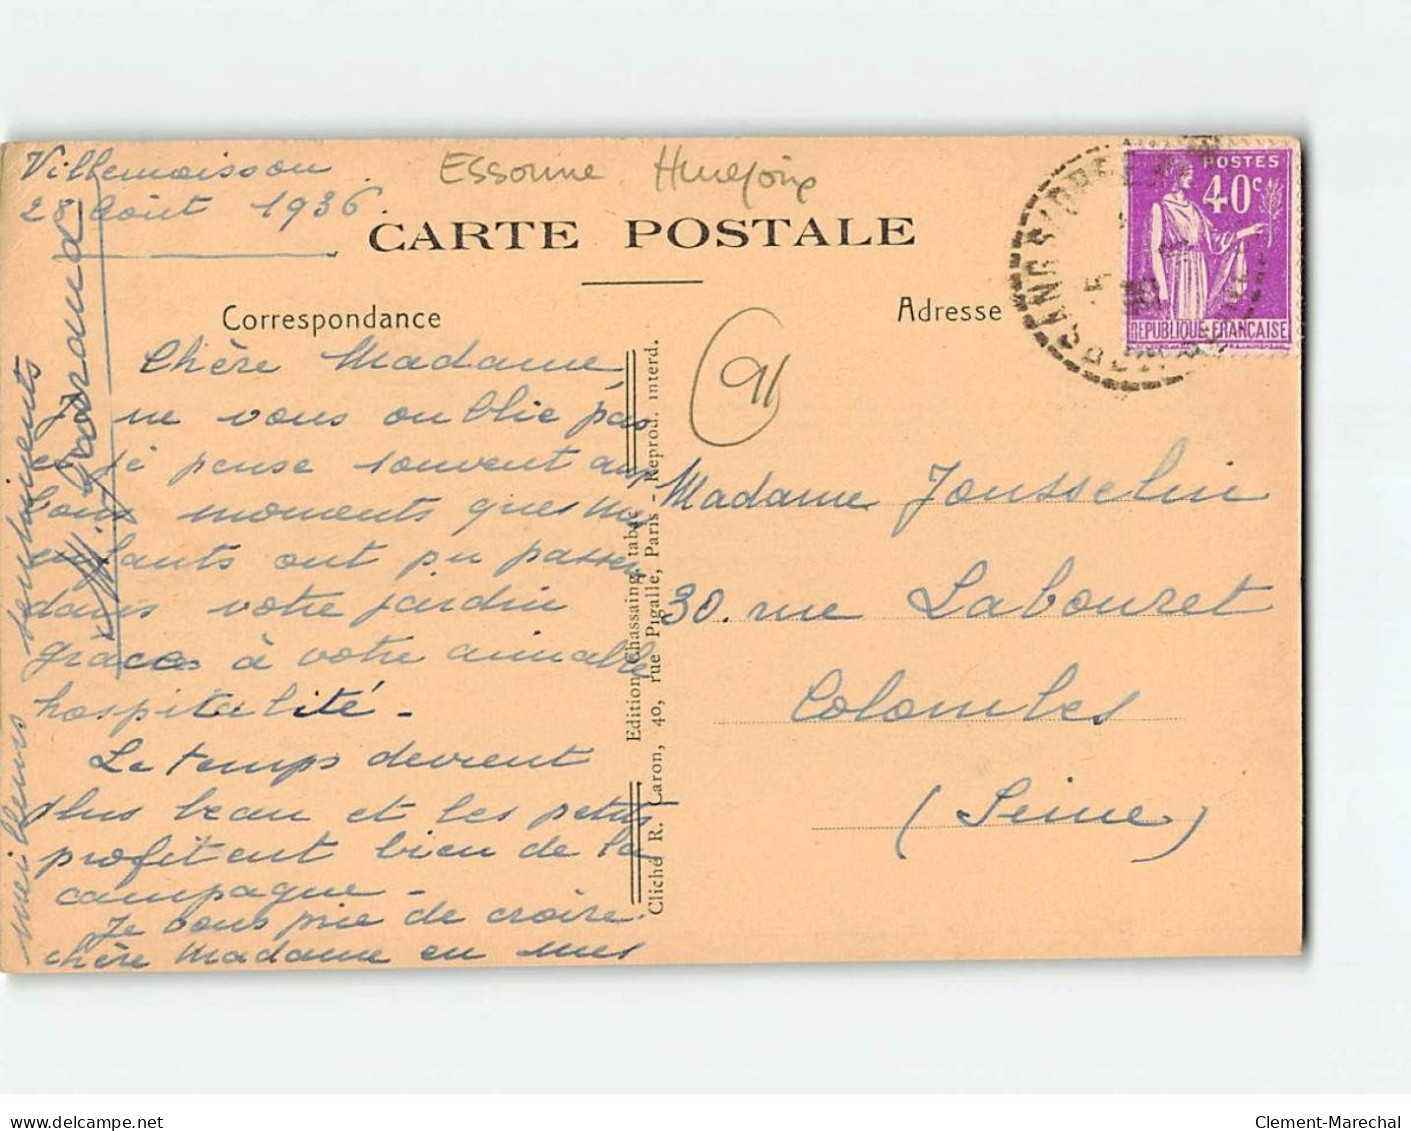 Villemoisson
28 Août 1936.
Essonne
CARTE POSTALE
Correspondance
Adresse
POSTES
40c
REPUBLIQUE FRANCAISE
91
Chère Madame
Je ne vous oublie pas
et je pense souvent aux
bons moments que mes
enfants ont pu passer
dans votre jardin
graces à votre aimable
hospitalité -
Le temps devient
plus beau et les petits
profitent bien de la
campagne -
Je vous prie de croire
chère Madame en mes
meilleurs sentiments
Edition Chassaing, tabac
Cliché R. Caron, 40, rue Pigalle, Paris - Reprod. interd.
Madame Jousselin
30. rue Labouret
Colombes
(Seine)
delcampe.net
Clement-Marechal